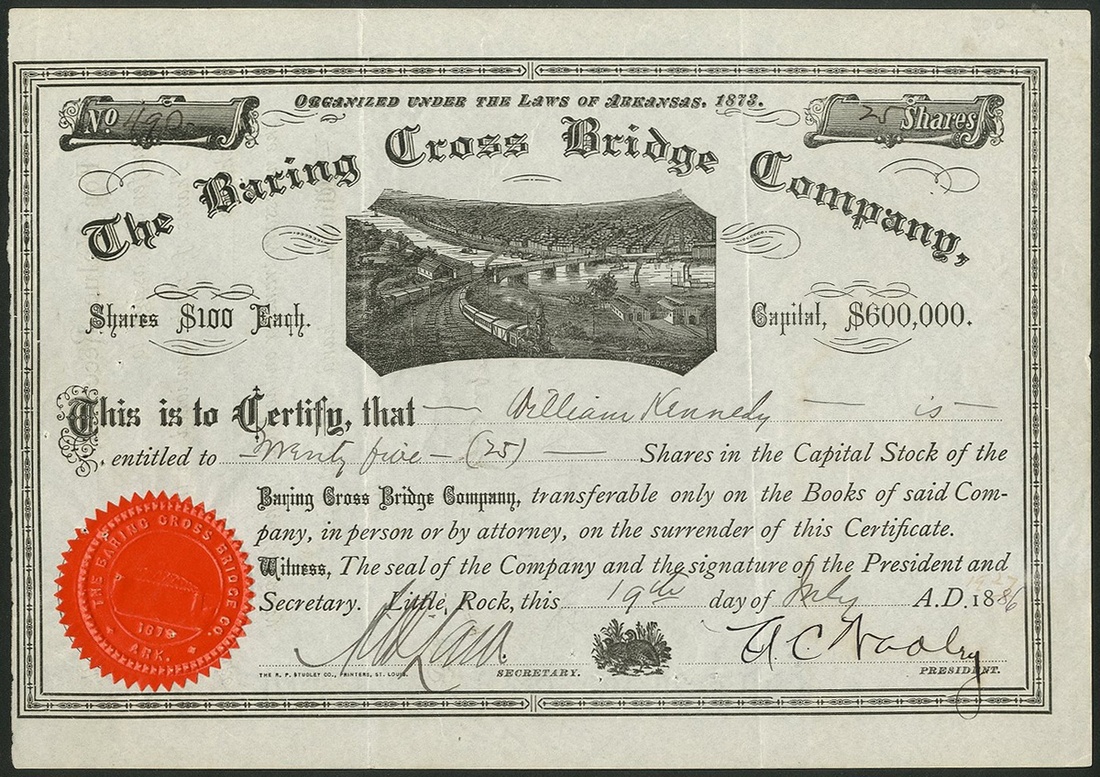 Organized under the Laws of Arkansas. 1873.
No 490
25 Shares
The Baring Cross Bridge Company,
Shares $100 Each.
Capital, $600,000.
This is to Certify, that William Kennedy is
entitled to Twenty five (25) Shares in the Capital Stock of the
Baring Cross Bridge Company, transferable only on the Books of said Com-
pany, in person or by attorney, on the surrender of this Certificate.
Witness, The seal of the Company and the signature of the President and
Secretary. Little Rock, this 19th day of July A.D. 1886
THE BARING CROSS BRIDGE CO.
ARK.
SECRETARY.
PRESIDENT.
THE R. P. STUDLEY CO., PRINTERS, ST. LOUIS.